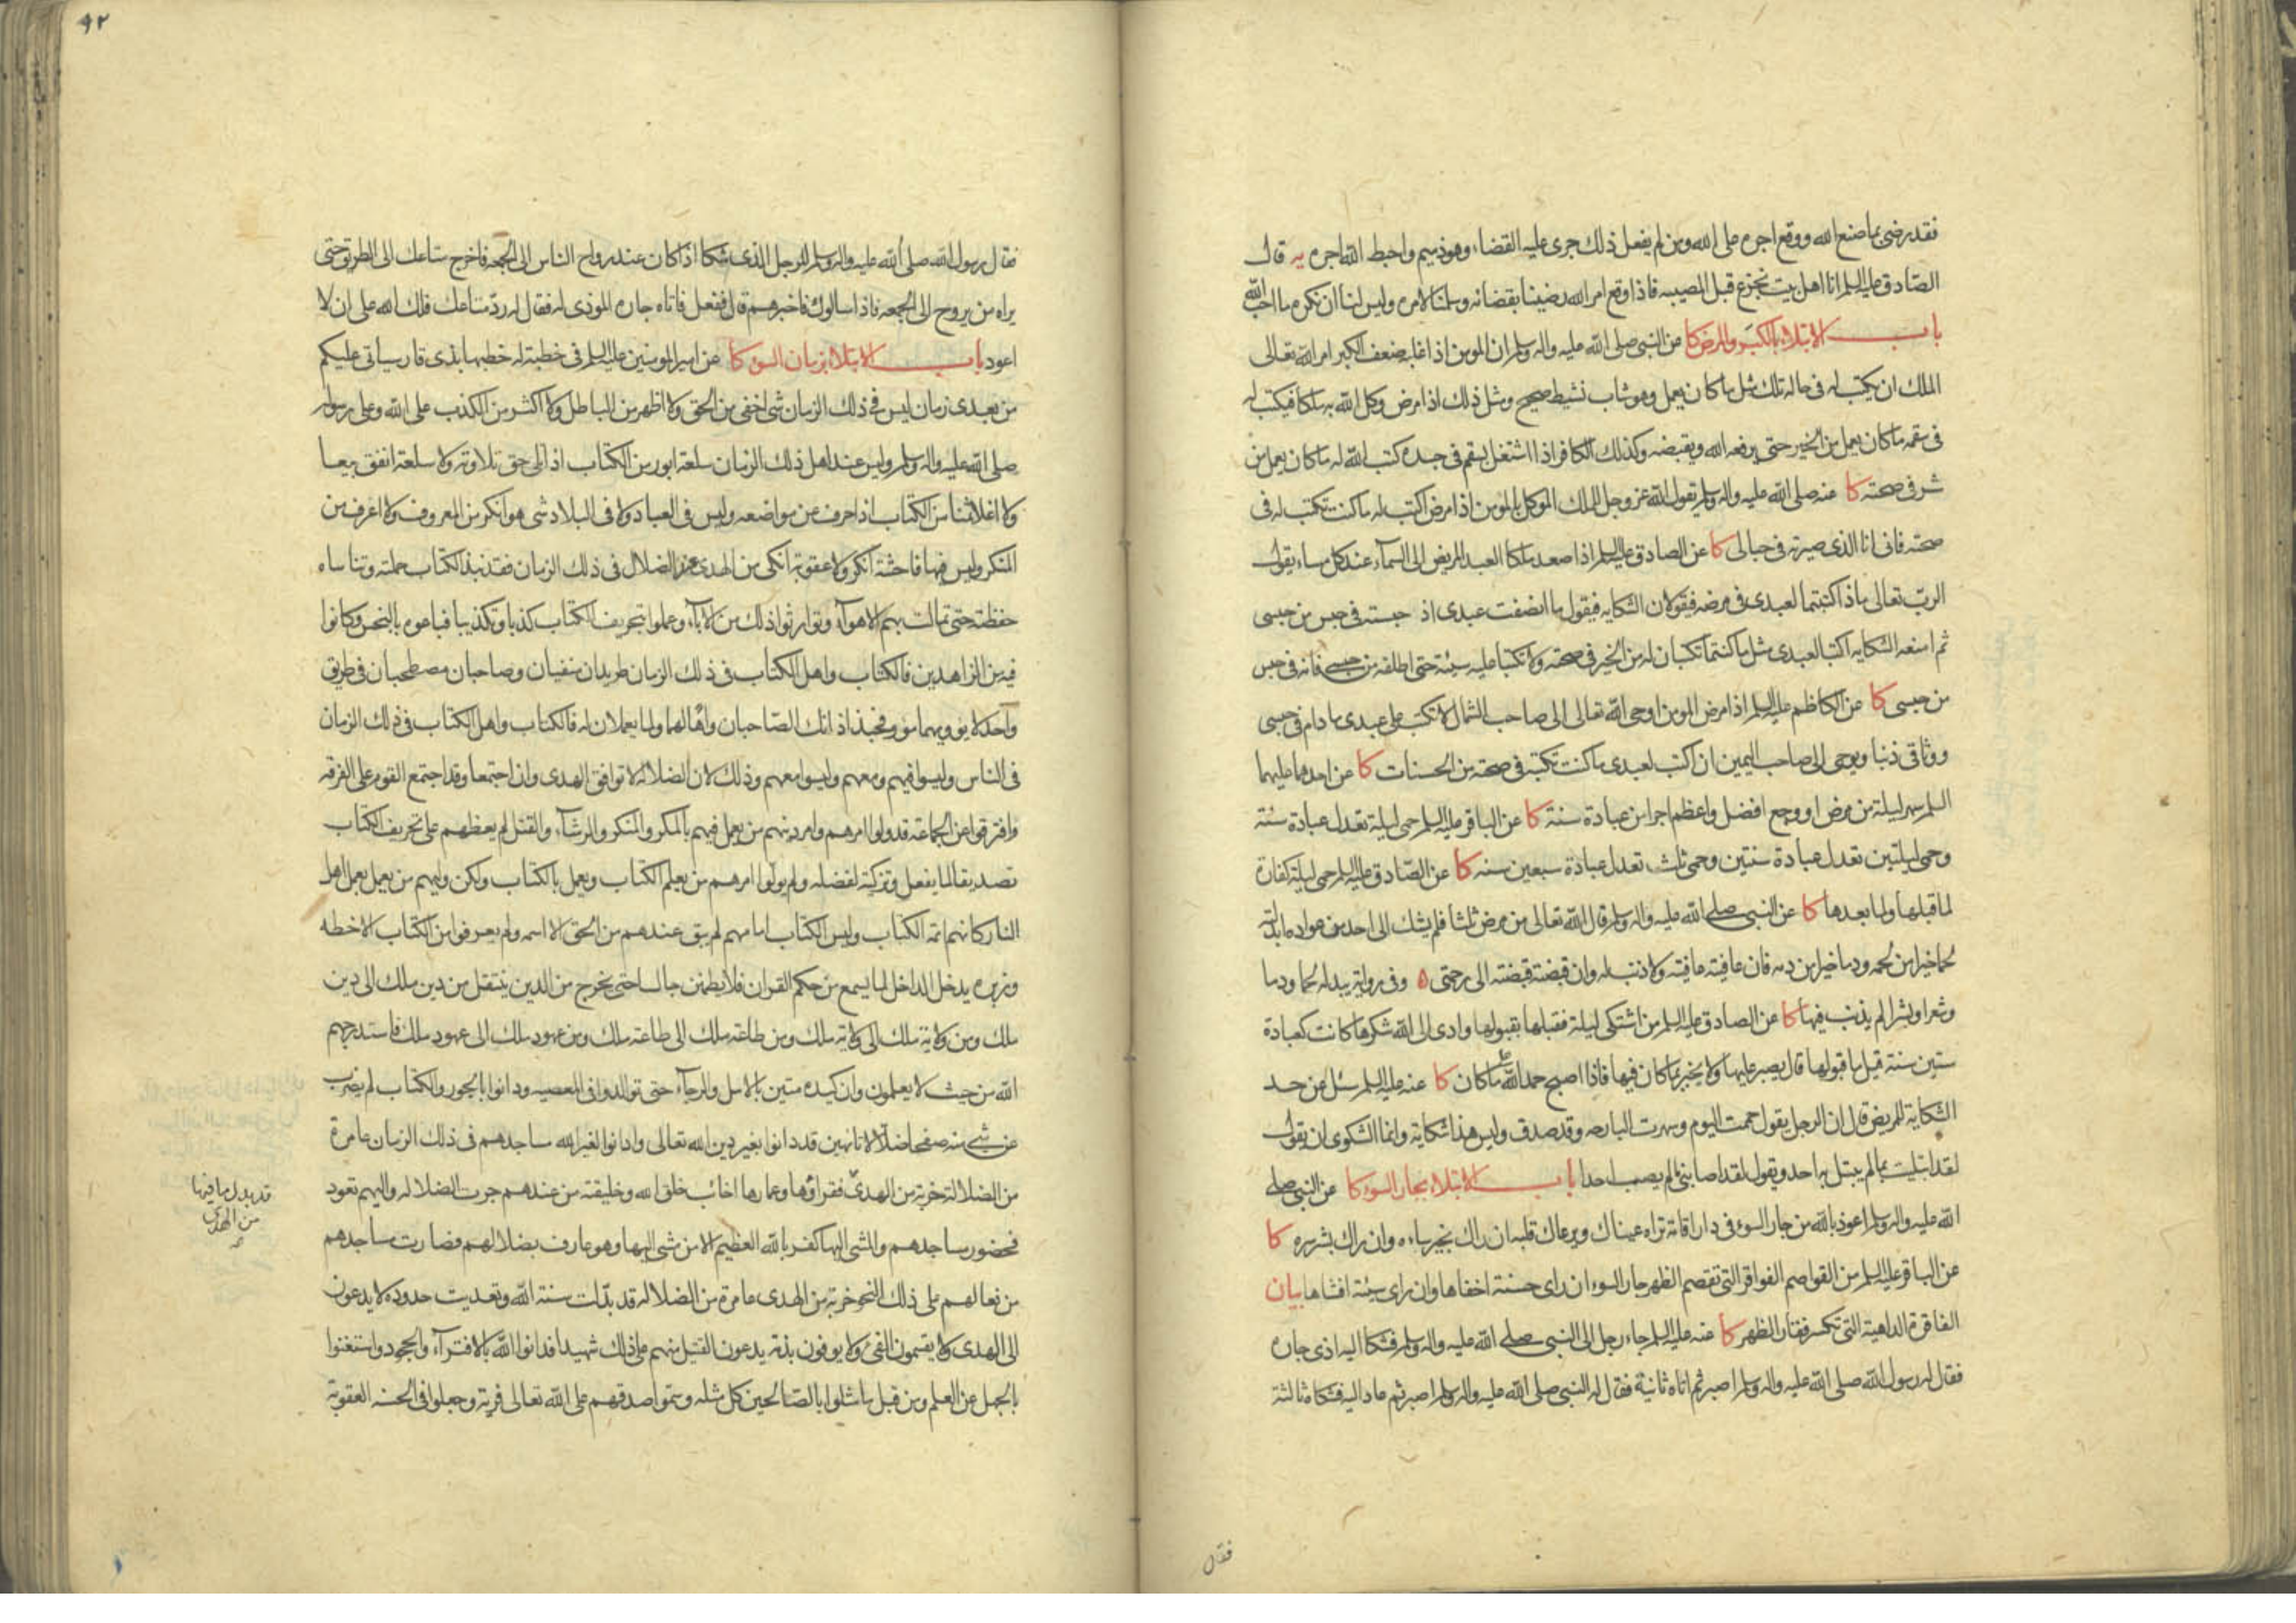 فقد رضى بما صنع الله ووقع اجره على الله ومن لم يفعل ذلك جرى عليه القضاء وهو ذميم واحبط الله اجره يه قال
الصادق عليه السلم انا اهل بيت نجزع قبل المصيبه فاذا وقع امر الله رضينا بقضائه وسلمنا لامره وليس لنا ان نكره ما احب الله
باب الابتلاء بالكبر والمرض كا عن النبى صلى الله عليه واله وسلم ان المومن اذا غلبه ضعف الكبر امر الله تعالى
الملك ان يكتب له فى حاله تلك مثل ما كان يعمل وهو شاب نشيط صحيح ومثل ذلك اذا مرض وكل الله به ملكا فيكتب له
فى سقمه ما كان يعمل من الخير حتى يرفعه الله ويقبضه وكذلك الكافر اذا اشتغل بسقم فى جسده كتب الله له ما كان يعمل من
شر فى صحته كا عنه صلى الله عليه واله وسلم يقول الله عز وجل للملك الموكل بالمومن اذا مرض اكتب له ما كنت تكتب له فى
صحته فانى انا الذى صيرته فى حبالى كا عن الصادق عليه السلم اذا صعد ملكا العبد المريض الى السمآء عند كل مساء يقول
الرب تعالى ماذا كتبتما لعبدى فى مرضه فيقولان الشكايه فيقول ما انصفت عبدى اذ حبسته فى حبس من حبسى
ثم امنعه الشكايه اكتبا لعبدى مثل ما كنتما تكتبان له من الخير فى صحته ولا تكتبا عليه سيئة حتى اطلقه من حبسى فانه فى حبس
من حبسى كا عن الكاظم عليه السلم اذا مرض المومن اوحى الله تعالى الى صاحب الشمال لا تكتب على عبدى ما دام فى حبسى
ووثاقى ذنبا ويوحى الى صاحب اليمين ان اكتب لعبدى ما كنت تكتبه فى صحته من الحسنات كا عن احدهما عليهما
السلم سهر ليلة من مرض او وجع افضل واعظم اجرا من عبادة سنة كا عن الباقر عليه السلم حمى ليلة تعدل عبادة سنة
وحمى ليلتين تعدل عبادة سنتين وحمى ثلث تعدل عبادة سبعين سنه كا عن الصادق عليه السلم حمى ليلة كفارة
لما قبلها ولما بعدها كا عن النبى صلى الله عليه واله وسلم قال الله تعالى من مرض ثلثا فلم يشك الى احد من عواده ابدلته
لحما خيرا من لحمه ودما خيرا من دمه فان عافيته عافيته ولا ذنب له وان قبضته قبضته الى رحمتى ه وفى رواية يبدله لحما ودما
وشعرا وبشرا لم يذنب فيها كا عن الصادق عليه السلم من اشتكى ليلة فقبلها بقبولها وادى الى الله شكرها كانت كعبادة
ستين سنة قيل ما قبولها قال يصبر عليها ولا يخبر بما كان فيها فاذا اصبح حمد الله على ما كان كا عنه عليه السلم سئل عن حد
الشكاية للمريض قال ان الرجل يقول حممت اليوم وسهرت البارحه وقد صدق وليس هذا شكاية وانما الشكوى ان يقول
لقد ابتليت بما لم يبتل به احد ويقول لقد اصابنى ما لم يصب احدا باب الابتلاء بجار السوء كا عن النبى صلى
الله عليه واله وسلم اعوذ بالله من جار السوء فى دار اقامة تراه عيناك ويرعاك قلبه ان راك بخير ساءه وان راك بشر سره كا
عن الباقر عليه السلم من القواصم الفواقر التى تقصم الظهر جار السوء ان راى حسنة اخفاها وان راى سيئة افشاها بيان
الفاقرة الداهية التى تكسر فقار الظهر كا عنه عليه السلم جاء رجل الى النبى صلى الله عليه واله وسلم فشكا اليه اذى جاره
فقال له رسول الله صلى الله عليه واله وسلم اصبر ثم اتاه ثانية فقال له النبى صلى الله عليه واله وسلم اصبر ثم عاد اليه فشكاه ثالثة
فقال
٩٢
فقال رسول الله صلى الله عليه واله وسلم للرجل الذى شكا اذا كان عند رواح الناس الى الجمعه فاخرج متاعك الى الطريق حتى
يراه من يروح الى الجمعه فاذا سالوك فاخبرهم قال ففعل فاتاه جاره الموذى له فقال له رد متاعك فلك الله على ان لا
اعود باب الابتلاء بزمان السوء كا عن امير المومنين عليه السلم فى خطبة له خطبها بذى قار سياتى عليكم
من بعدى زمان ليس فى ذلك الزمان شى اخفى من الحق ولا اظهر من الباطل ولا اكثر من الكذب على الله وعلى رسوله
صلى الله عليه واله وسلم وليس عند اهل ذلك الزمان سلعة ابور من الكتاب اذا تلى حق تلاوته ولا سلعة انفق بيعا
ولا اغلا ثمنا من الكتاب اذا حرف عن مواضعه وليس فى العباد ولا فى البلاد شى هو انكر من المعروف ولا اعرف من
المنكر وليس فيها فاحشة انكر ولا عقوبة انكى من الهدى عند الضلال فى ذلك الزمان فقد نبذ الكتاب حملته وتناساه
حفظته حتى تمالت بهم الاهوآء وتوارثوا ذلك من الابآء وعملوا بتحريف الكتاب كذبا وتكذيبا فباعوه بالبخس وكانوا
فيه من الزاهدين فالكتاب واهل الكتاب فى ذلك الزمان طريدان منفيان وصاحبان مصطحبان فى طريق
واحد لا يوويهما موو فحبذا ذانك الصاحبان واها لهما ولما يعملان له فالكتاب واهل الكتاب فى ذلك الزمان
فى الناس وليسوا فيهم ومعهم وليسوا معهم وذلك لان الضلالة لا توافق الهدى وان اجتمعا وقد اجتمع القوم على الفرقه
وافترقوا عن الجماعة قد ولوا امرهم وامر دينهم من يعمل فيهم بالمكر والمنكر والرشآء والقتل لم يعظهم على تحريف الكتاب
تصديقا لما يفعل وتزكية لفضله ولم يولوا امرهم من يعلم الكتاب ويعمل بالكتاب ولكن وليهم من يعمل بعمل اهل
النار كانهم ائمة الكتاب وليس الكتاب امامهم لم يبق عندهم من الحق الا اسمه ولم يعرفوا من الكتاب الا خطه
وزبره يدخل الداخل لما يسمع من حكم القران فلا يطمئن جالسا حتى يخرج من الدين ينتقل من دين ملك الى دين
ملك ومن ولاية ملك الى ولاية ملك ومن طاعة ملك الى طاعة ملك ومن عهود ملك الى عهود ملك فاستدرجهم
الله من حيث لا يعلمون وان كيده متين بالامل والرجآء حتى توالدوا فى المعصيه ودانوا بالجور والكتاب لم يضرب
عن شى منه صفحا ضلالا تائهين قد دانوا بغير دين الله تعالى وادانوا لغير الله مساجدهم فى ذلك الزمان عامرة
من الضلالة خربة من الهدى فقراوها وعمارها اخائب خلق الله وخليقته من عندهم جرت الضلاله واليهم تعود
فحضور مساجدهم والمشى اليها كفر بالله العظيم الا من مشى اليها وهو عارف بضلالهم فصارت مساجدهم
من فعالهم على ذلك النحو خربة من الهدى عامرة من الضلاله قد بدلت سنة الله وتعديت حدوده لا يدعون
الى الهدى ولا يقسمون الفئ ولا يوفون بذمة يدعون القتيل منهم على ذلك شهيدا فدانوا الله بالافترآء والجحود واستغنوا
بالجهل عن العلم ومن قبل ما مثلوا بالصالحين كل مثله وسموا صدقهم على الله تعالى فرية وجعلوا فى الحسنه العقوبة
قد بدل ما فيها
من الهدى